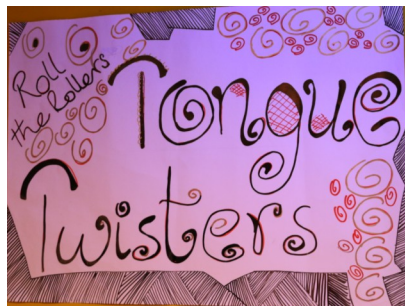 Roll
the Rollers
Tongue
Twisters